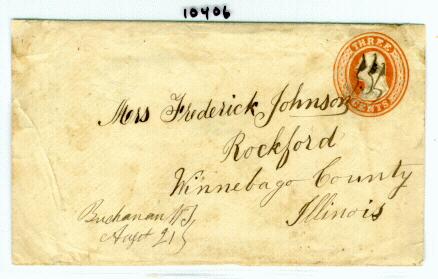 10406
THREE
CENTS
Mrs Frederick Johnson
Rockford
Winnebago County
Illinois
Buchanan
21